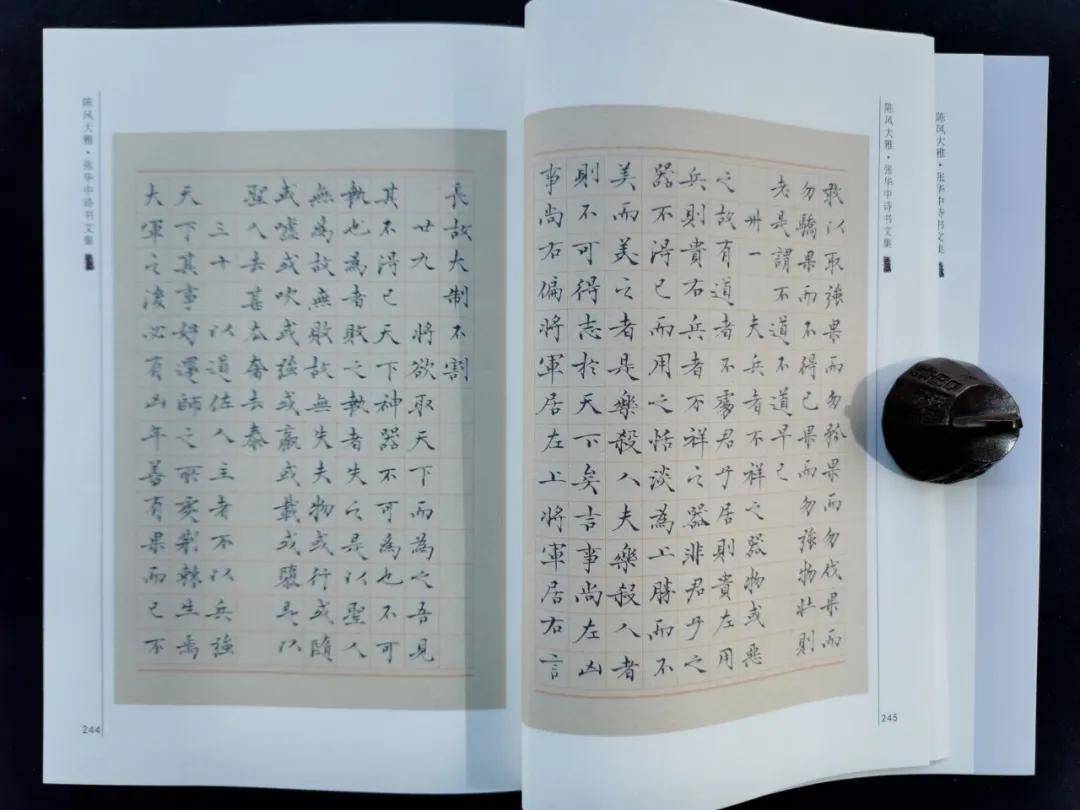 陈风大雅·张华中诗书文集
長故大制不割
廿九 將欲取天下而為之吾見
其不得已天下神器不可為也不可
執也為者敗之執者失之是以聖人
無為故無敗故無失夫物或行或隨
或噓或吹或強或羸或載或隳是以
聖人去甚去奢去泰
三十 以道佐人主者不以兵強
天下其事好還師之所處荊棘生焉
大軍之後必有凶年善有果而已不
244
陈风大雅·张华中诗书文集
敢以取強果而勿矜果而勿伐果而
勿驕果而不得已果而勿強物壯則
老是謂不道不道早已
卅一 夫兵者不祥之器物或惡
之故有道者不處君子居則貴左用
兵則貴右兵者不祥之器非君子之
器不得已而用之恬淡為上勝而不
美而美之者是樂殺人夫樂殺人者
則不可得志於天下矣吉事尚左凶
事尚右偏將軍居左上將軍居右言
245
陈风大雅·张华中诗书文集